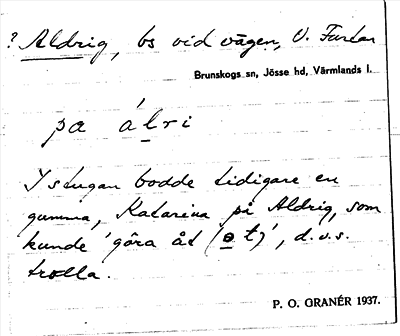 ? Aldrig, bs vid vägen, V. Furtan
Brunskogs sn, Jösse hd, Värmlands l.
pa álri
I stugan bodde tidigare en
gumma, Katarina på Aldrig, som
kunde 'göra åt (ət)', d.v.s.
trolla.
P. O. GRANÉR 1937.